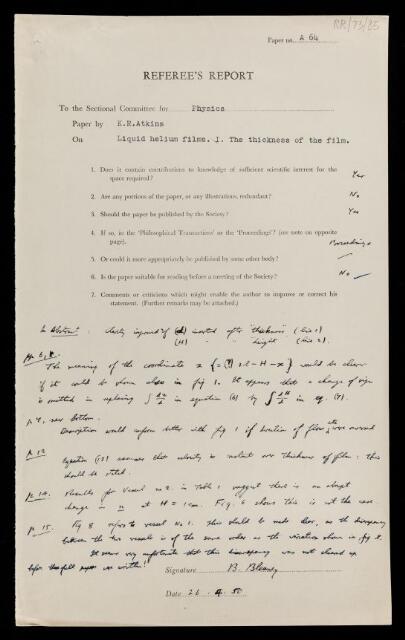 RR/73/85
Paper no. A 64
REFEREE'S REPORT
To the Sectional Committee for Physics
Paper by K.R.Atkins
On Liquid helium films. I. The thickness of the film.
1. Does it contain contributions to knowledge of sufficient scientific interest for the
space required? Yes
2. Are any portions of the paper, or any illustrations, redundant? No
3. Should the paper be published by the Society? Yes
4. If so, in the 'Philosophical Transactions' or the 'Proceedings'? (see note on opposite
page). Proceedings
5. Or could it more appropriately be published by some other body?
6. Is the paper suitable for reading before a meeting of the Society? No
7. Comments or criticisms which might enable the author to improve or correct his
statement. (Further remarks may be attached.)
In Abstract: clarity improved if (d) inserted after 'thickness' (line 1)
(H) " height (line 2).
The meaning of the coordinate x would be clearer
if it could be shown also in fig 1. It appears that a change of sign
is omitted in replacing in equation (6) by in eq. (7).
p 7, near bottom.
Description would conform better with fig 1 if direction of flow etc were reversed
p 12 Equation (12) assumes that velocity is constant over thickness of film: this
should be stated.
p. 14. Results for Vessel no 2. in Table 1 suggest there is an abrupt
change in n at H = 1cm. Fig. 6 shows this is not the case.
p. 15. Fig 8 refers to vessel No. 1. This should be made clear, as the discrepancy
between the two vessels is of the same order as the variation shown in fig 8.
It seems very unfortunate that this discrepancy was not cleared up
before the full paper was written!
Signature B. Bleaney
Date 26 . 4. 50